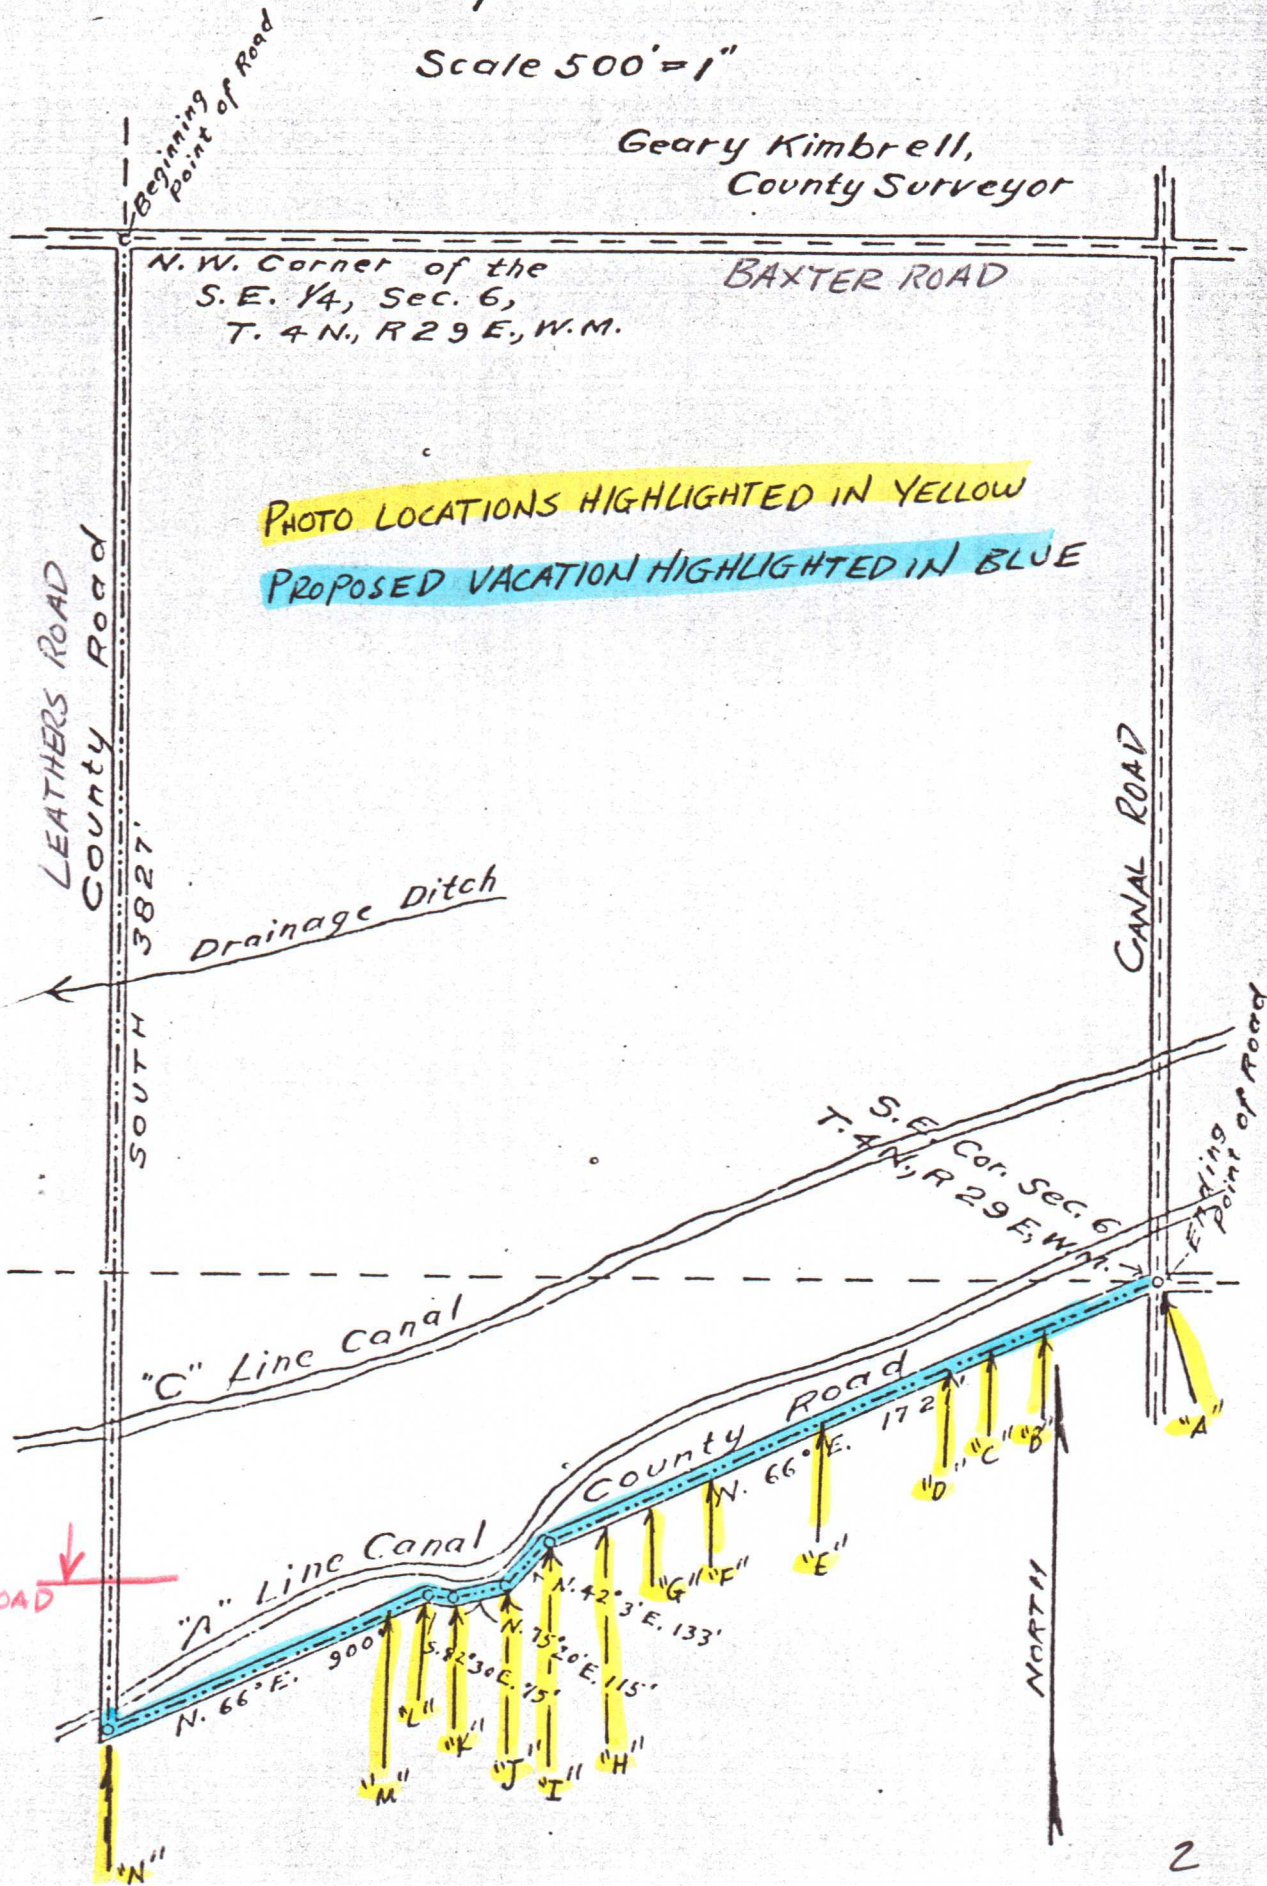 Scale 500'=1"
Beginning
Point of Road
Geary Kimbrell,
County Surveyor
N.W. Corner of the
S.E. 1/4, Sec. 6,
T. 4 N., R 29 E., W.M.
BAXTER ROAD
PHOTO LOCATIONS HIGHLIGHTED IN YELLOW
PROPOSED VACATION HIGHLIGHTED IN BLUE
LEATHERS ROAD
County Road
SOUTH 3827'
Drainage Ditch
CANAL ROAD
S.E. Cor. Sec. 6
T. 4 N., R 29 E, W.M.
Ending
Point of Road
"C" Line Canal
"A" Line Canal
County Road
N. 66° E. 172'
N. 42° 3' E. 133'
N. 75° 20' E. 115'
S. 82° 30 E. 75'
N. 66° E. 900'
OAD
"A"
"B"
"C"
"D"
"E"
"F"
"G"
"H"
"I"
"J"
"K"
"L"
"M"
"N"
NORTH
2